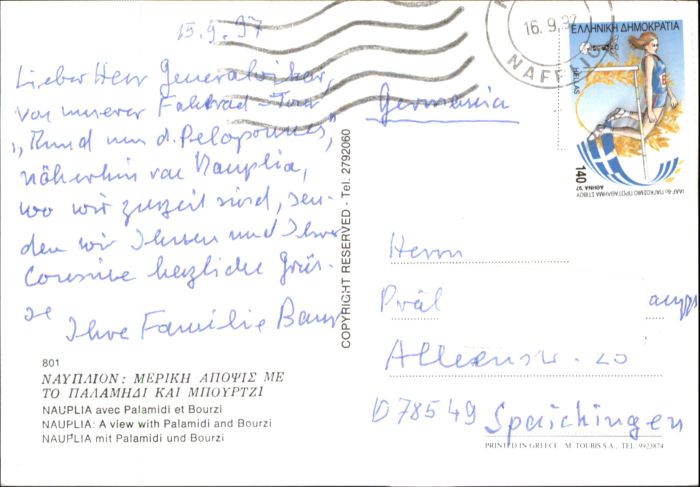 15.9.97
Lieber Herr Generalvikar,
von unserer Fahrrad-Tour
„Rund um d. Peloponnes",
näherhin von Nauplia,
wo wir zurzeit sind, sen-
den wir Ihnen und Ihrer
Cousine herzliche Grüs-
se
Ihre Familie Baur
801
ΝΑΥΠΛΙΟΝ: ΜΕΡΙΚΗ ΑΠΟΨΙΣ ΜΕ
ΤΟ ΠΑΛΑΜΗΔΙ ΚΑΙ ΜΠΟΥΡΤΖΙ
NAUPLIA avec Palamidi et Bourzi
NAUPLIA: A view with Palamidi and Bourzi
NAUPLIA mit Palamidi und Bourzi
COPYRIGHT RESERVED - Tel. 2792060
16.9.97
NAFPLIO
ΕΛΛΗΝΙΚΗ ΔΗΜΟΚΡΑΤΙΑ
HELLAS
140
ΑΘΗΝΑ '97
IAAF-6ο ΠΑΓΚΟΣΜΙΟ ΠΡΩΤΑΘΛΗΜΑ ΣΤΙΒΟΥ
Germania
Herrn
Präl
Alleenstr. 20
D 78549 Spaichingen
PRINTED IN GREECE M. TOUBIS S.A., TEL. 9923874